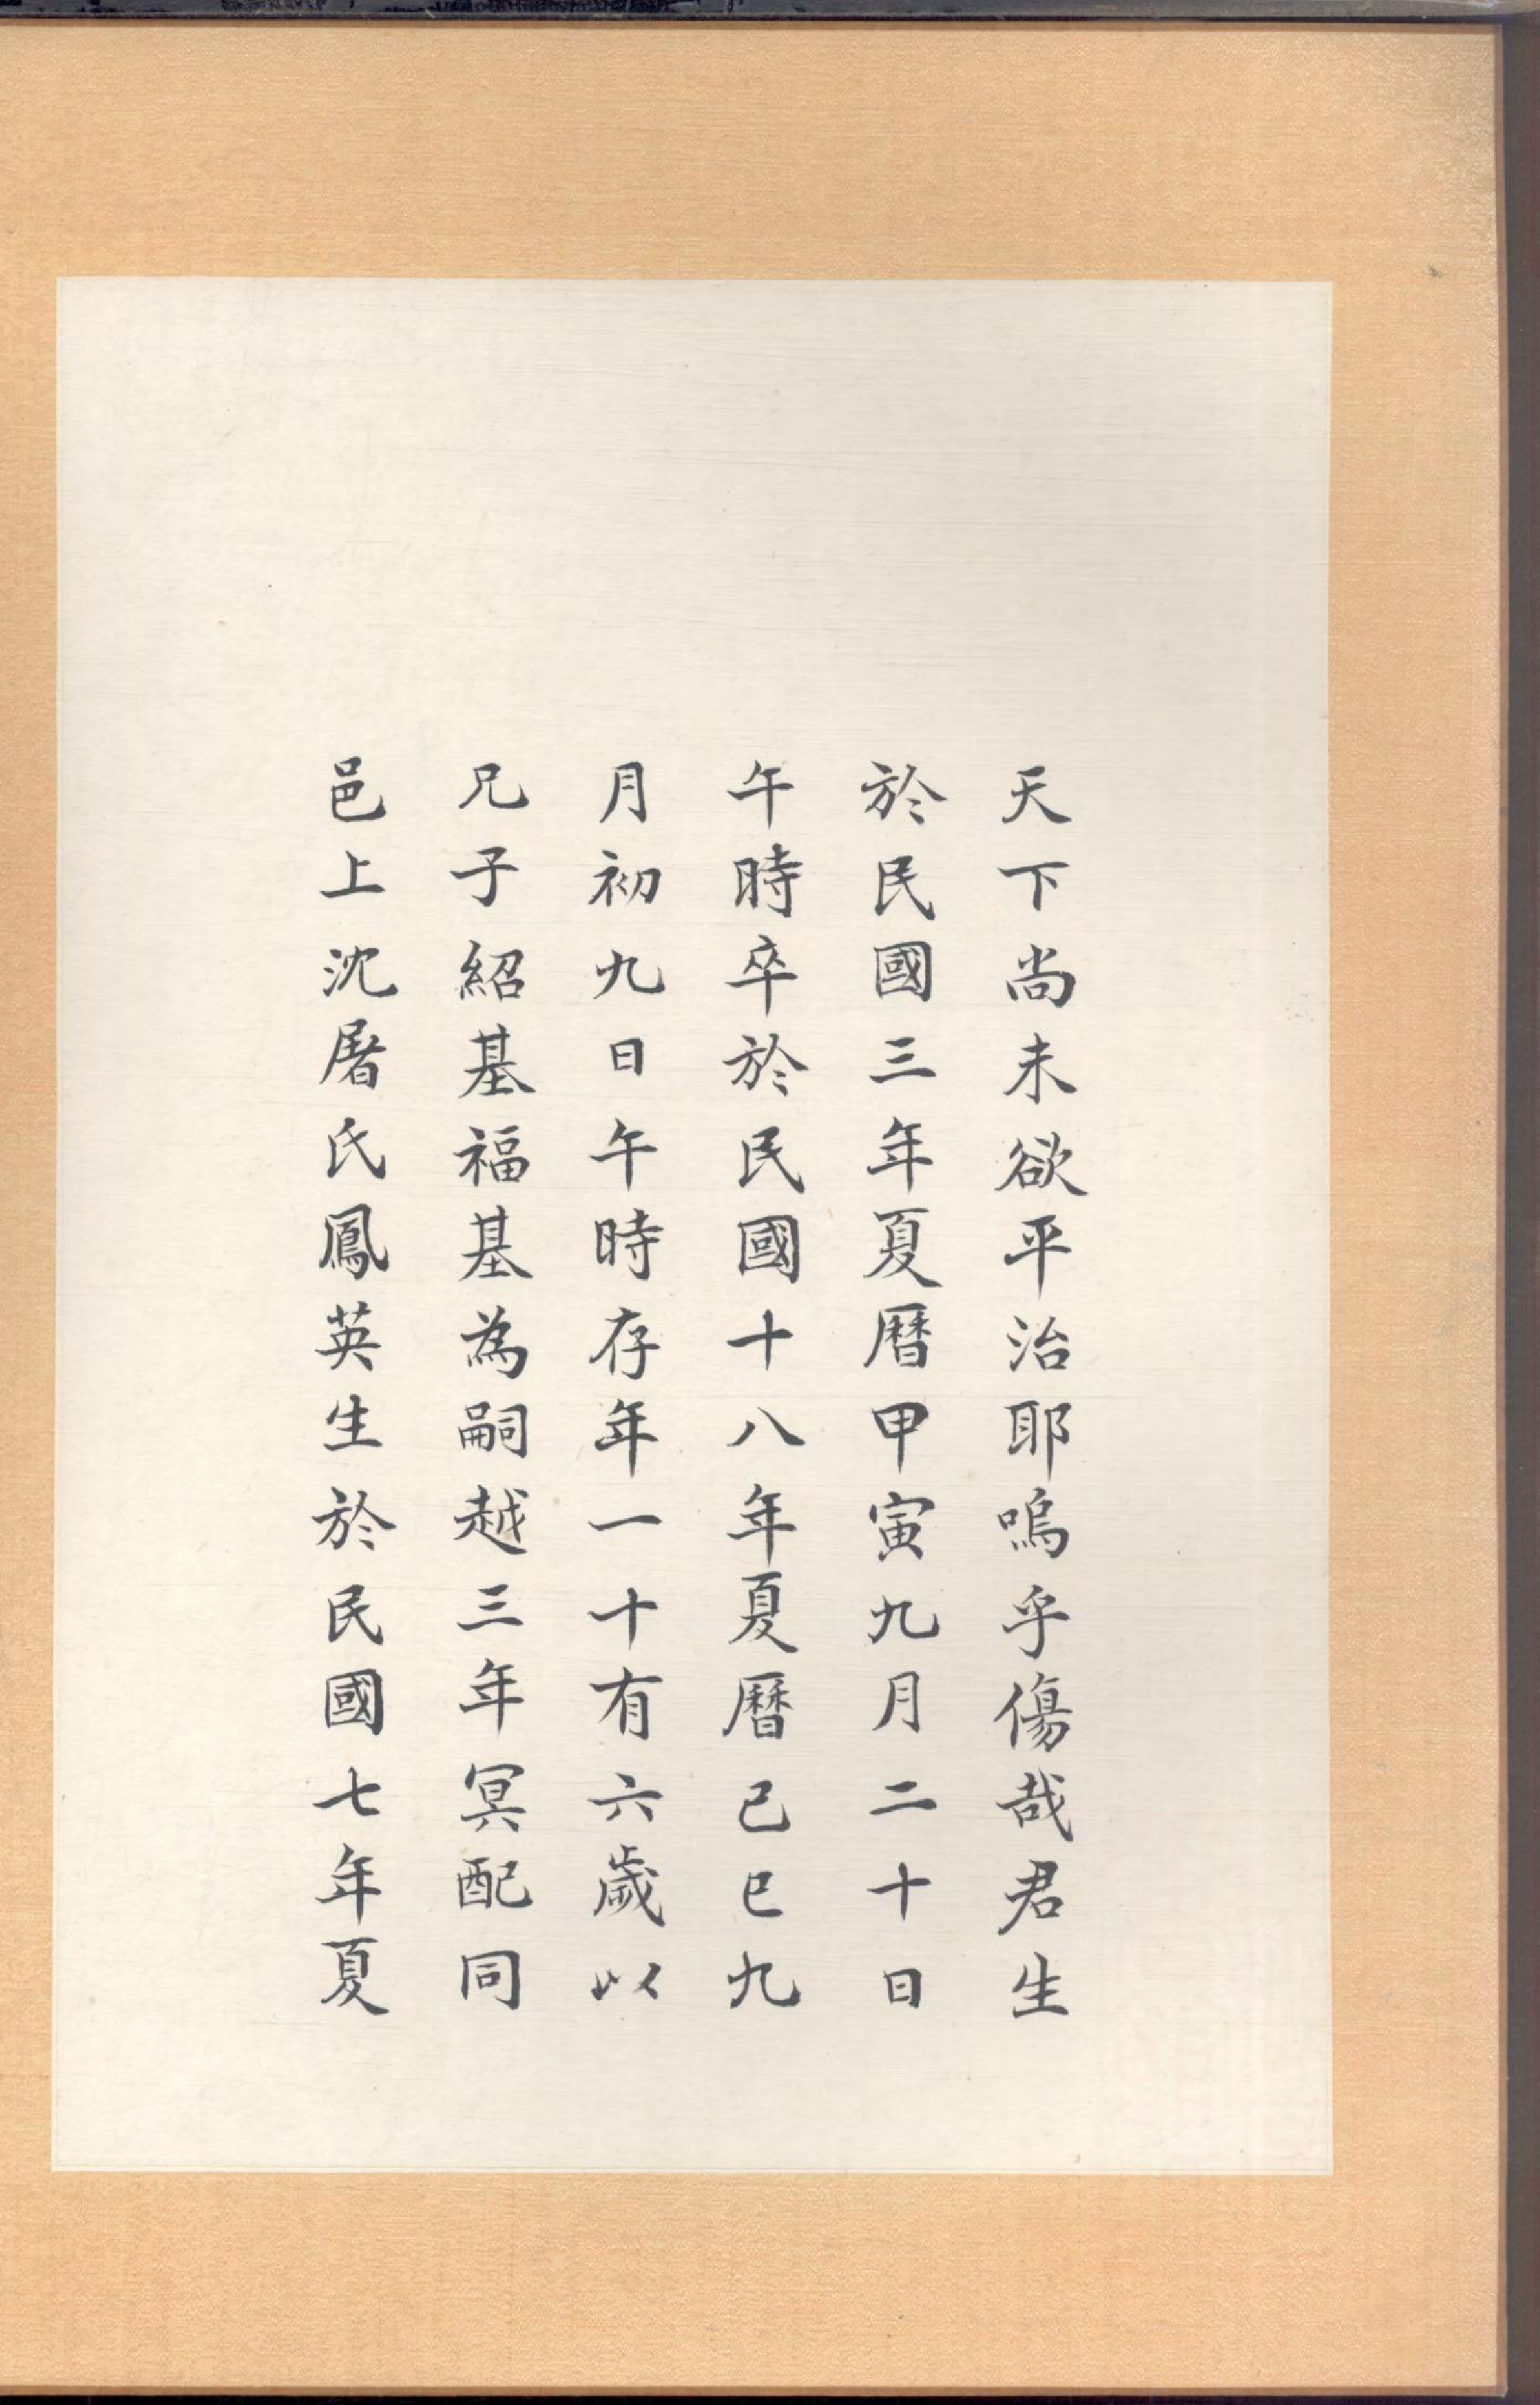 天下尚未欲平治耶嗚乎傷哉君生
於民國三年夏曆甲寅九月二十日
午時卒於民國十八年夏曆己巳九
月初九日午時存年一十有六歲以
兄子紹基福基為嗣越三年冥配同
邑上沈屠氏鳳英生於民國七年夏